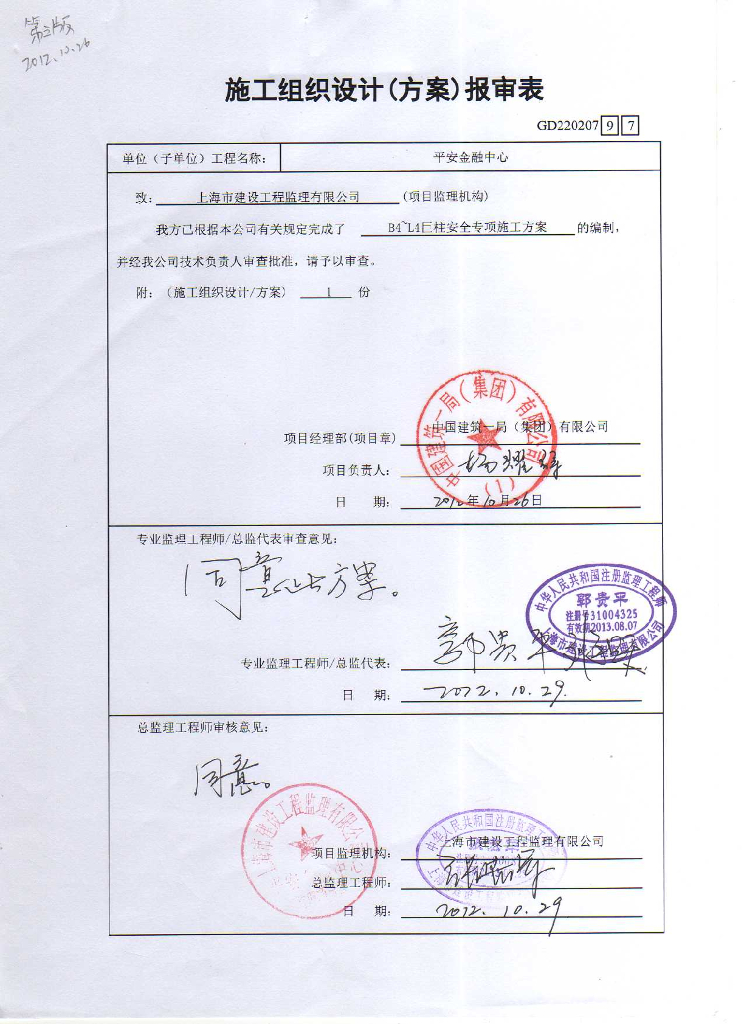 第三版
2012.10.26
施工组织设计(方案)报审表
GD220207 9 7
单位（子单位）工程名称： 平安金融中心
致： 上海市建设工程监理有限公司 (项目监理机构)
我方已根据本公司有关规定完成了 B4~L4巨柱安全专项施工方案 的编制，
并经我公司技术负责人审查批准，请予以审查。
附：（施工组织设计/方案） 1 份
中国建筑一局（集团）有限公司
(1)
项目经理部(项目章) 中国建筑一局（集团）有限公司
项目负责人：
日 期： 2012年10月26日
专业监理工程师/总监代表审查意见：
同意上方案。
中华人民共和国注册监理工程师
郭贵平
注册号31004325
有效期2013.08.07
上海市建设工程监理有限公司
专业监理工程师/总监代表： 郭贵平
日 期： 2012.10.29.
总监理工程师审核意见：
同意。
上海市建设工程监理有限公司
中华人民共和国注册监理工程师
项目监理机构： 上海市建设工程监理有限公司
总监理工程师：
日 期： 2012.10.29